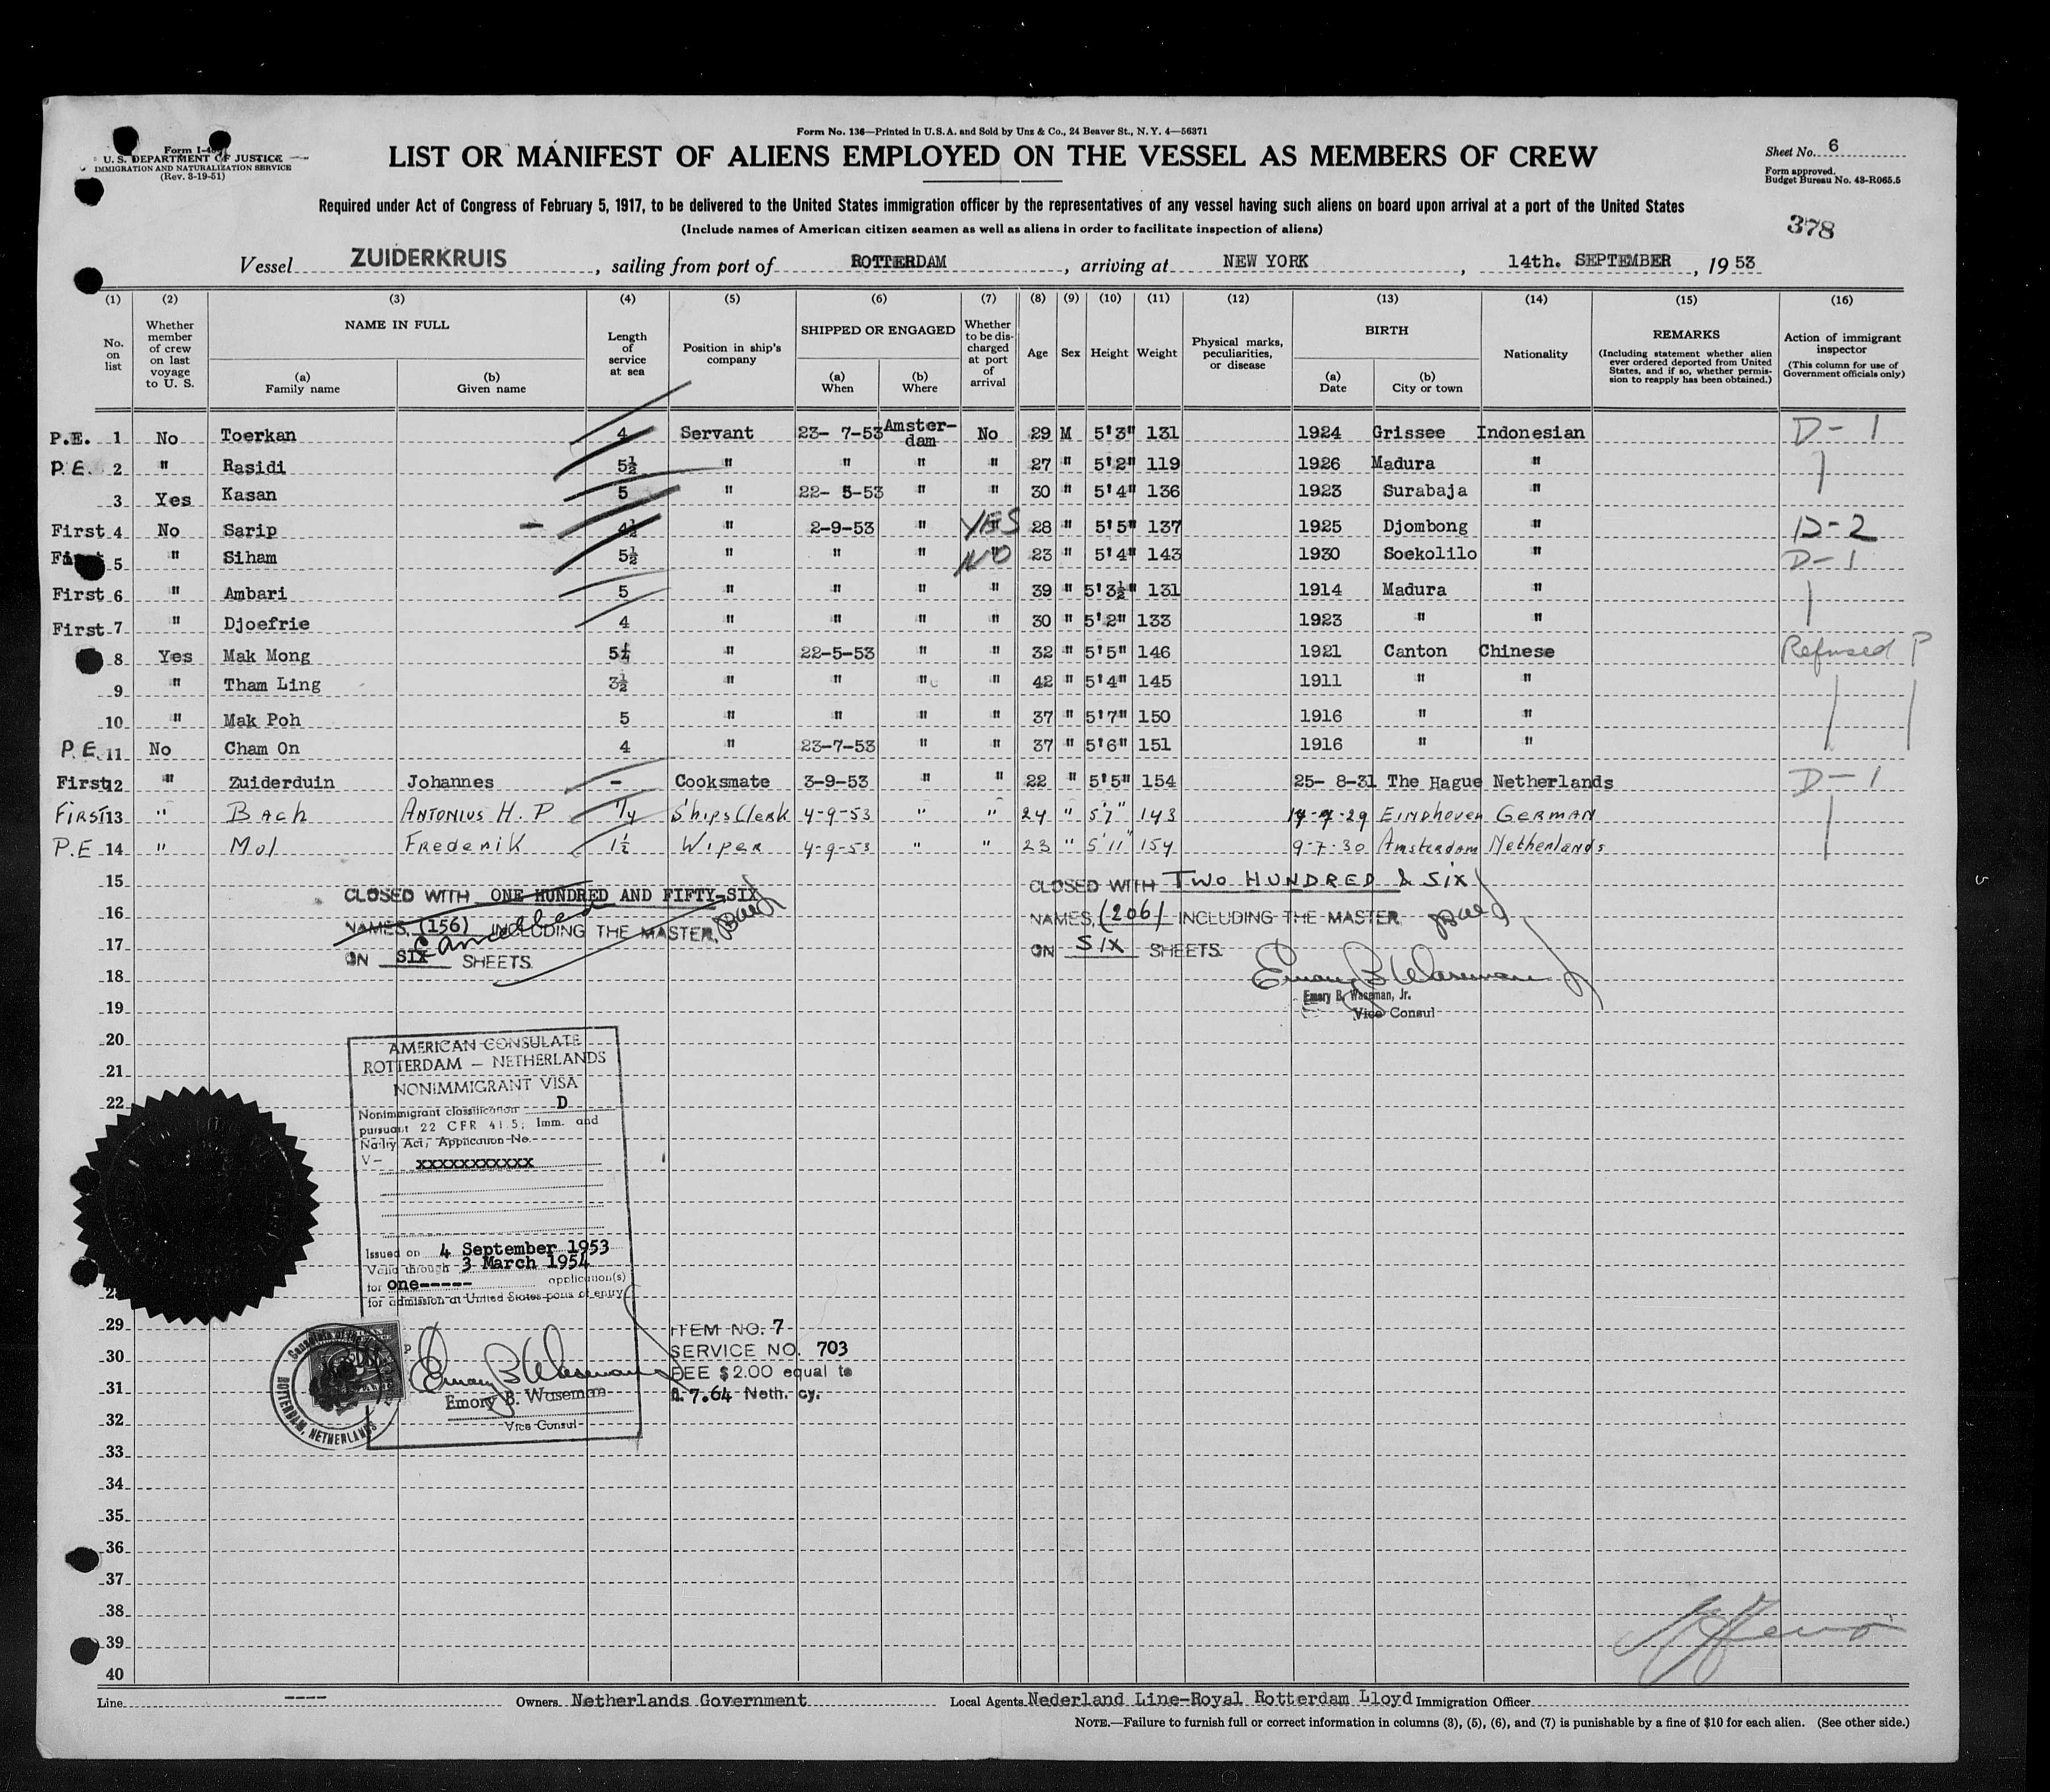 Form No. 136—Printed in U.S.A. and Sold by Unz & Co., 24 Beaver St., N. Y. 4—56371
U. S. DEPARTMENT OF JUSTICE
IMMIGRATION AND NATURALIZATION SERVICE
(Rev. 3-19-51)
LIST OR MANIFEST OF ALIENS EMPLOYED ON THE VESSEL AS MEMBERS OF CREW
Sheet No. 6
Form approved.
Budget Bureau No. 43-R065.5
Required under Act of Congress of February 5, 1917, to be delivered to the United States immigration officer by the representatives of any vessel having such aliens on board upon arrival at a port of the United States
(Include names of American citizen seamen as well as aliens in order to facilitate inspection of aliens)
378
Vessel ZUIDERKRUIS, sailing from port of ROTTERDAM, arriving at NEW YORK, 14th. SEPTEMBER, 19 53
(1) (2) (3) (4) (5) (6) (7) (8) (9) (10) (11) (12) (13) (14) (15) (16)
No. on list
Whether member of crew on last voyage to U. S.
NAME IN FULL
(a) Family name
(b) Given name
Length of service at sea
Position in ship's company
SHIPPED OR ENGAGED
(a) When
(b) Where
Whether to be discharged at port of arrival
Age
Sex
Height
Weight
Physical marks, peculiarities, or disease
BIRTH
(a) Date
(b) City or town
Nationality
REMARKS
(Including statement whether alien ever ordered deported from United States, and if so, whether permission to reapply has been obtained.)
Action of immigrant inspector
(This column for use of Government officials only)
P.E. 1 No Toerkan 4 Servant 23- 7-53 Amster-dam No 29 M 5'3" 131 1924 Grissee Indonesian D-1
P.E. 2 " Rasidi 5½ " " " " 27 " 5'2" 119 1926 Madura "
3 Yes Kasan 5 " 22- 5-53 " " 30 " 5'4" 136 1923 Surabaja "
First 4 No Sarip 4½ " 2-9-53 " YES 28 " 5'5" 137 1925 Djombong " D-2
First 5 " Siham 5½ " " " NO 23 " 5'4" 143 1930 Soekolilo " D-1
First 6 " Ambari 5 " " " " 39 " 5'3½" 131 1914 Madura "
First 7 " Djoefrie 4 " " " " 30 " 5'2" 133 1923 " "
8 Yes Mak Mong " 22-5-53 " " 32 " 5'5" 146 1921 Canton Chinese Refused P
9 " Tham Ling 3½ " " " " 42 " 5'4" 145 1911 " "
10 " Mak Poh 5 " " " " 37 " 5'7" 150 1916 " "
P.E. 11 No Cham On 4 " 23-7-53 " " 37 " 5'6" 151 1916 " "
First 12 " Zuiderduin Johannes - Cooksmate 3-9-53 " " 22 " 5'5" 154 25- 8-31 The Hague Netherlands D-1
FIRST 13 " Bach ANTONIUS H. P 1/4 ShipsClerk 4-9-53 " " 24 " 5'7" 143 -29 EINDHOVEN GERMAN
P.E 14 " Mol FREDERIK 1½ WIPER 4-9-53 " " 23 " 5'11" 154 9-7-30 Amsterdam Netherlands
15
CLOSED WITH ONE HUNDRED AND FIFTY-SIX
NAMES, (156) INCLUDING THE MASTER,
ON SIX SHEETS.
Cancelled
CLOSED WITH TWO HUNDRED & SIX
NAMES, (206) INCLUDING THE MASTER
ON SIX SHEETS.
Emory B Waseman
Emory B. Waseman, Jr.
Vice Consul
16
17
18
19
20
21
22
AMERICAN CONSULATE
ROTTERDAM — NETHERLANDS
NONIMMIGRANT VISA
Nonimmigrant classification D
pursuant 22 CFR 41.5; Imm. and
Natlry Act, Application No.
V— xxxxxxxxxxx
Issued on 4 September 1953
Valid through 3 March 1954
for one----- application(s)
for admission at United States ports of entry
Emory B Waseman
Emory B. Waseman
Vice Consul
ROTTERDAM, NETHERLANDS
ITEM NO. 7
SERVICE NO. 703
FEE $2.00 equal to
fl. 7.64 Neth. cy.
29
30
31
32
33
34
35
36
37
38
39
40
Line ---- Owners Netherlands Government Local Agents Nederland Line-Royal Rotterdam Lloyd Immigration Officer
NOTE.—Failure to furnish full or correct information in columns (3), (5), (6), and (7) is punishable by a fine of $10 for each alien. (See other side.)